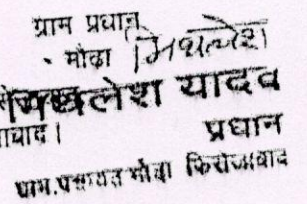 ग्राम प्रधान
मौढा मिथलेश
मिथलेश यादव
ाबाद।
प्रधान
ग्राम.पंचायत मौढा फिरोजाबाद